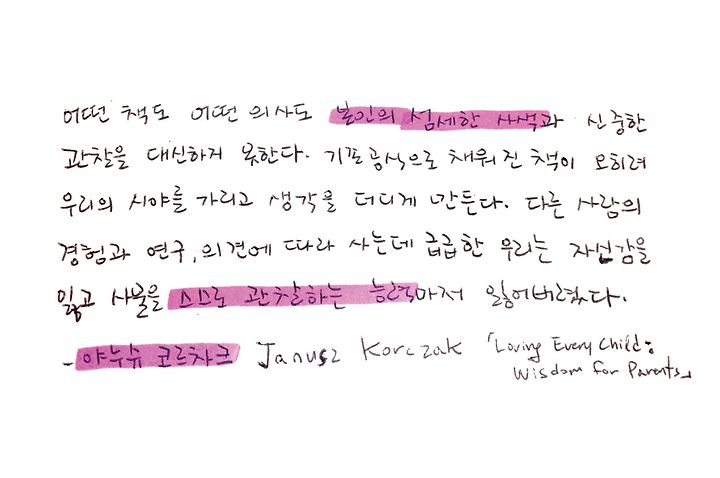 어떤 책도 어떤 의사도 본인의 섬세한 사색과 신중한
관찰을 대신하지 못한다. 기포공식으로 채워진 책이 오히려
우리의 시야를 가리고 생각을 더디게 만든다. 다른 사람의
경험과 연구, 의견에 따라 사는데 급급한 우리는 자신감을
잃고 사물을 스스로 관찰하는 능력마저 잃어버렸다.
- 야누슈 코르차크 Janusz Korczak 「Loving Every Child:
Wisdom for Parents」